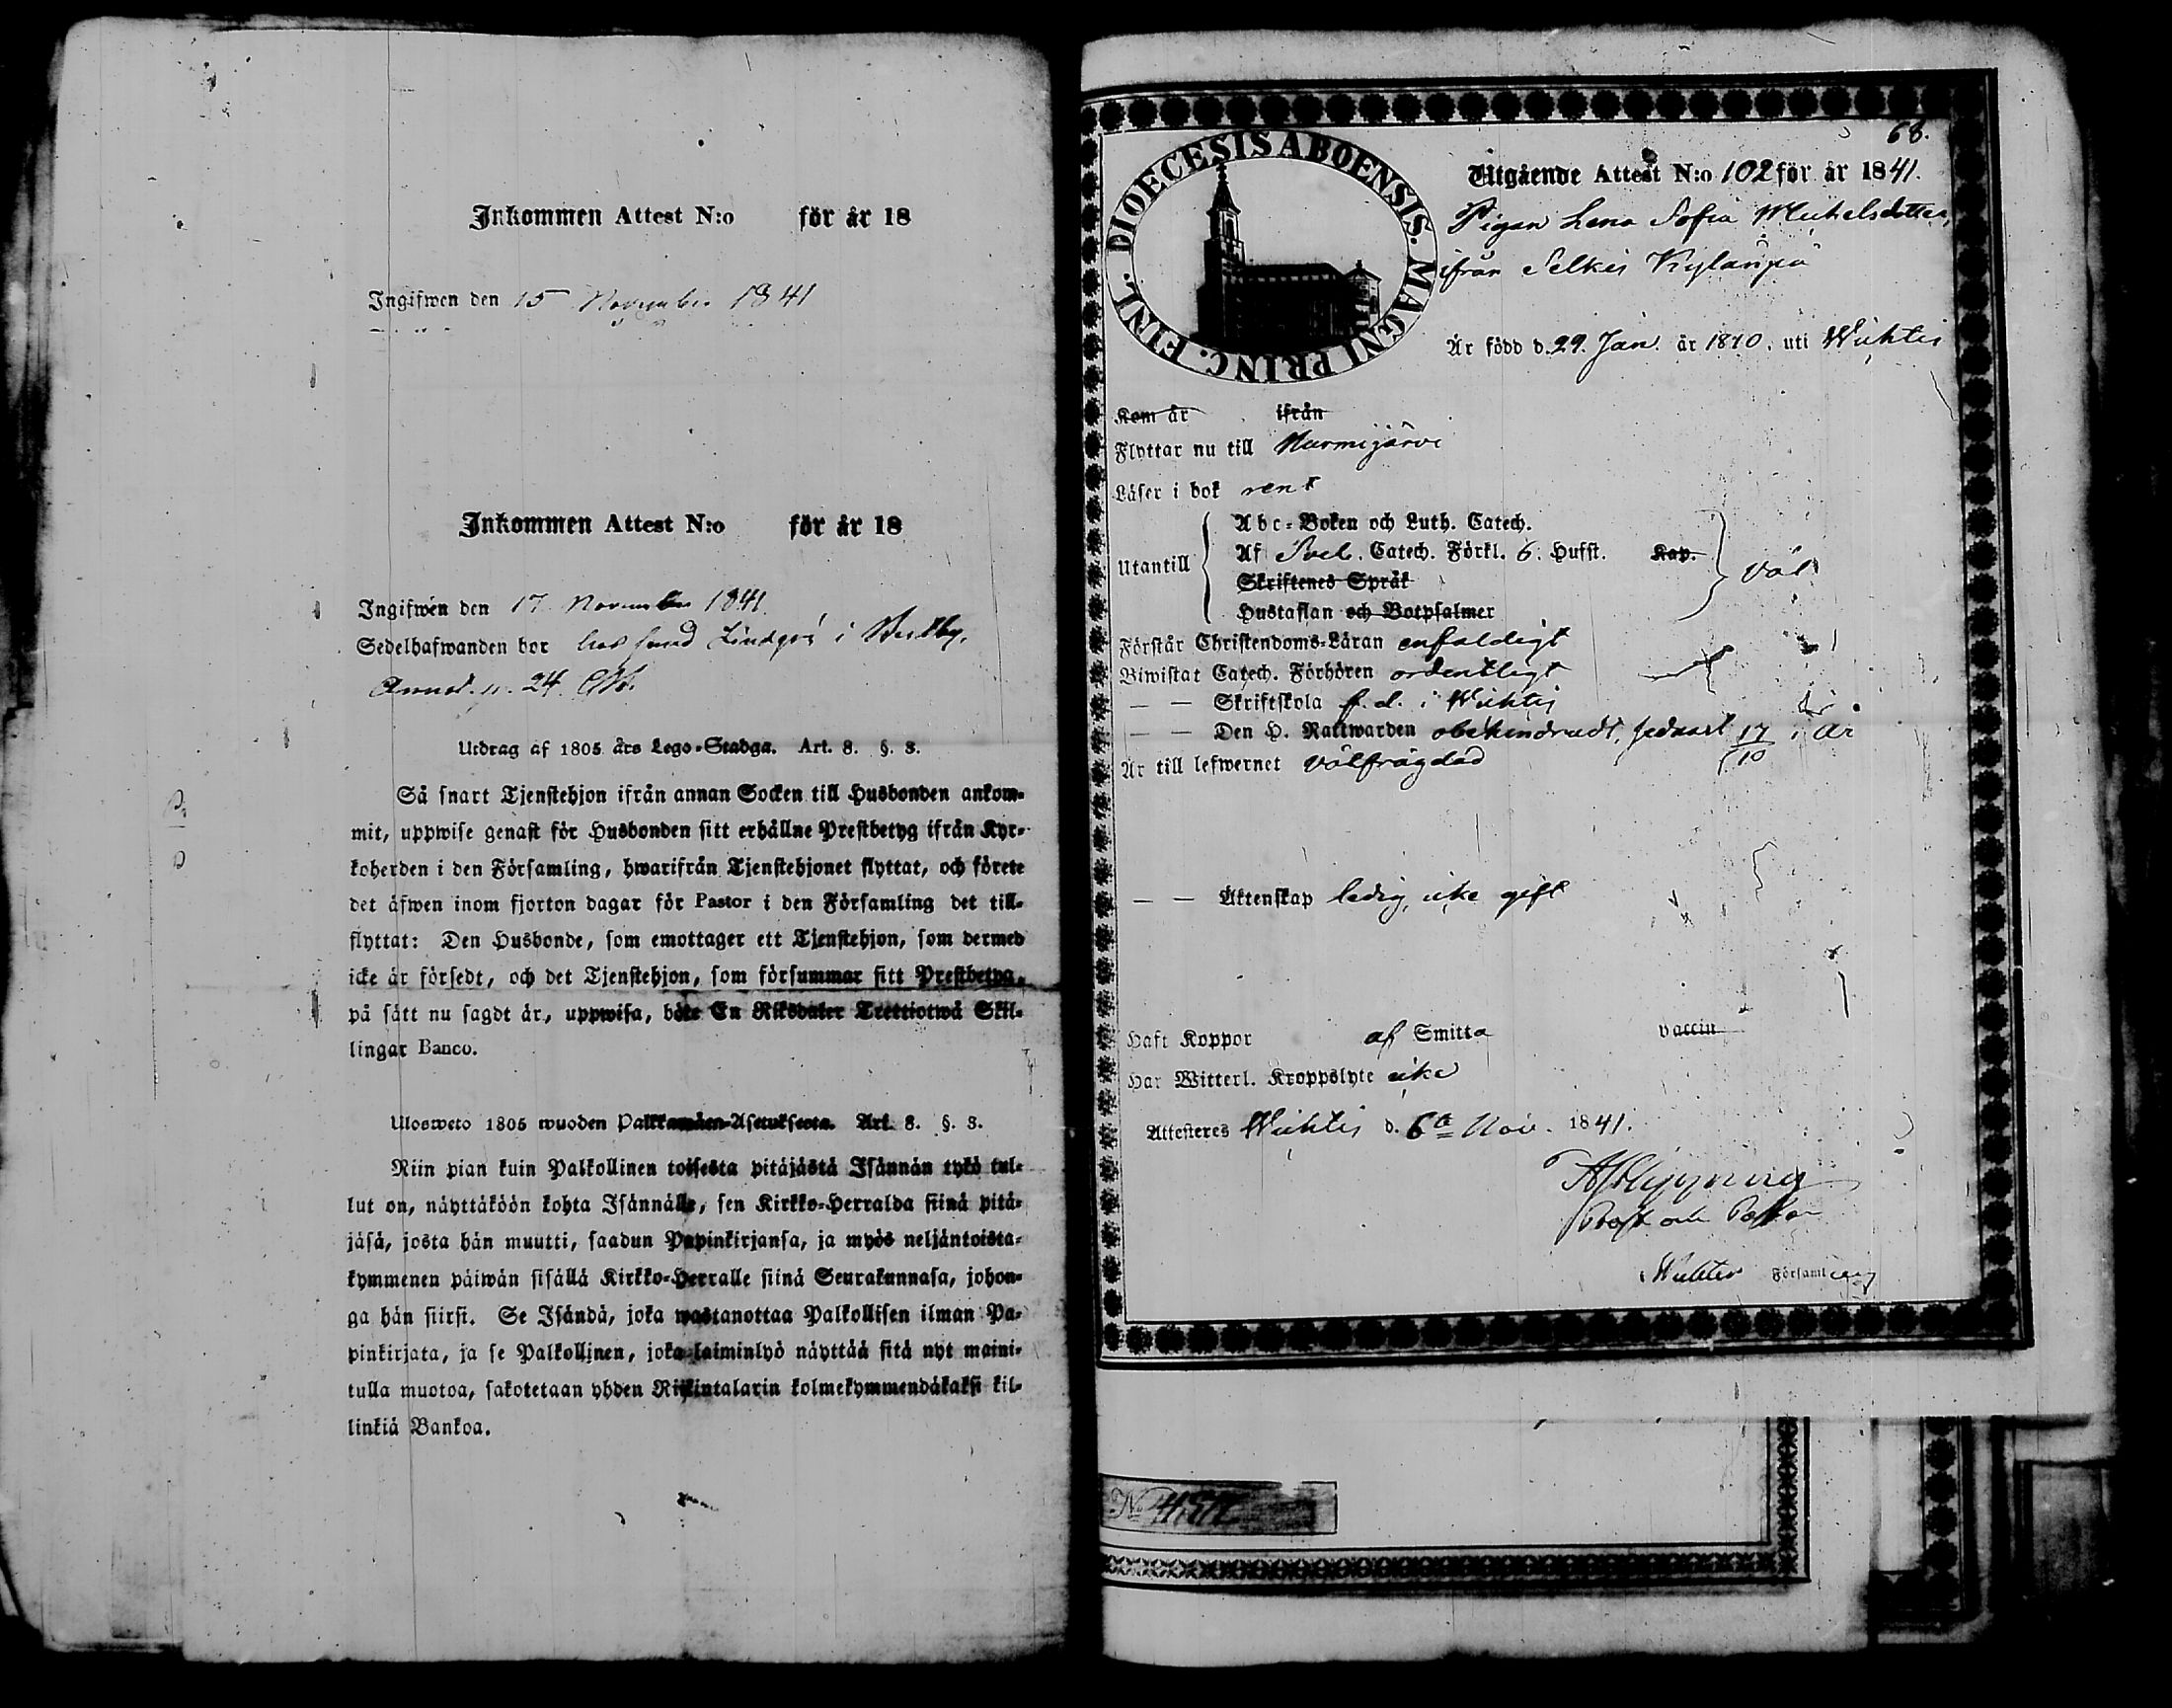 Inkommen Attest N:o för år 18
Ingifwen den 15 November 1841
Inkommen Attest N:o för år 18
Ingifwen den 17 November 1841
Sedelhafwanden bor hos i
24
Utdrag af 1805 års Lego-Stadga. Art. 8. §. 3.
Så snart Tjenstehjon ifrån annan Socken till Husbonden ankom-
mit, uppwise genast för Husbonden sitt erhållne Prestbetyg ifrån Kyr-
koherden i den Församling, hwarifrån Tjenstehjonet flyttat, och förete
det äfwen inom fjorton dagar för Pastor i den Församling det till-
flyttat: Den Husbonde, som emottager ett Tjenstehjon, som dermed
icke är försedt, och det Tjenstehjon, som försummar sitt Prestbetyg,
på sätt nu sagdt är, uppwisa, böte En Riksdaler Trettiotwå Skil-
lingar Banco.
Ulosweto 1805 wuoden Palkkawäen-Asetuksesta. Art. 8. §. 3.
Niin pian kuin Palkollinen toisesta pitäjästä Isännän tykö tul-
lut on, näyttäköön kohta Isännälle, sen Kirkko-Herralda siinä pitä-
jäsä, josta hän muutti, saadun Papinkirjansa, ja myös neljäntoista-
kymmenen päiwän sisällä Kirkko-Herralle siinä Seurakunnasa, johon-
ga hän siirsi. Se Isändä, joka wastanottaa Palkollisen ilman Pa-
pinkirjata, ja se Palkollinen, joka laiminlyö näyttää sitä nyt maini-
tulla muotoa, sakotetaan yhden Riikintalarin kolmekymmendäkaksi kil-
linkiä Bankoa.
68.
DIOECESIS ABOENSIS. MAGNI PRINC. FINL.
Utgående Attest N:o 102 för år 1841.
Pigan Lena Sofia Michelsdotter,
ifrån Selkis Kylänpä
Är född d. 29. Jan. år 1810. uti Wichtis
Kom år ifrån
Flyttar nu till Nurmijärvi
Läser i bok rent
Utantill
Abc-Boken och Luth. Catech.
Af Svel. Catech. Förkl. 6. Hufst. Kap.
Skriftenes Språk
Hustaflan och Botpsalmer
väl
Förstår Christendoms-Läran enfaldigt
Biwistat Catech. Förhören ordentligt
— — Skriftskola f. d. i Wichtis
— — Den H. Nattwarden obehindradt, sednast 17/10 i år
Är till lefwernet välfrägdad
— — Äktenskap ledig, icke gift
Haft Koppor af Smitta vaccin
Har Witterl. Kroppslyte icke
Attesteras Wichtis d. 6te Nov. 1841.
Prost och Pastor
Wichtis Församling
No